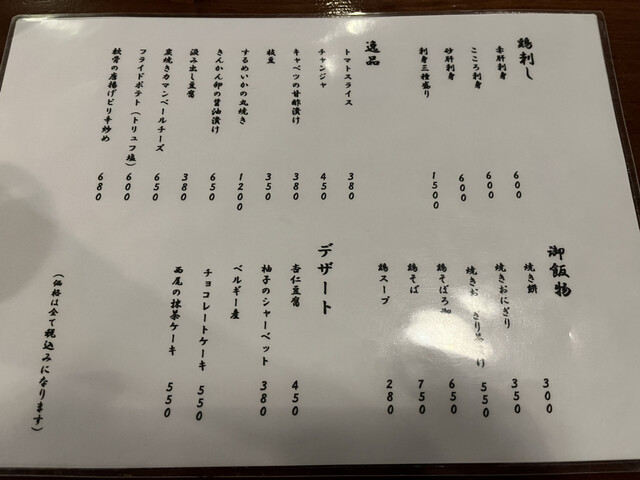 鶏刺し
赤肝刺身 600
こころ刺身 600
砂肝刺身 600
刺身三種盛り 1500
逸品
トマトスライス 380
チャンジャ 450
キャベツの甘酢漬け 380
枝豆 350
するめいかの丸焼き 1200
きんかん卵の醤油漬け 650
汲み出し豆腐 380
炭焼きカマンベールチーズ 650
フライドポテト(トリュフ塩) 600
軟骨の唐揚げピリ辛炒め 680
御飯物
焼き餅 300
焼きおにぎり 350
焼きお ぎり け 550
鶏そぼろ 650
鶏そば 750
鶏スープ 280
デザート
杏仁豆腐 450
柚子のシャーベット 380
ベルギー産
チョコレートケーキ 550
西尾の抹茶ケーキ 550
(価格は全て税込みになります)